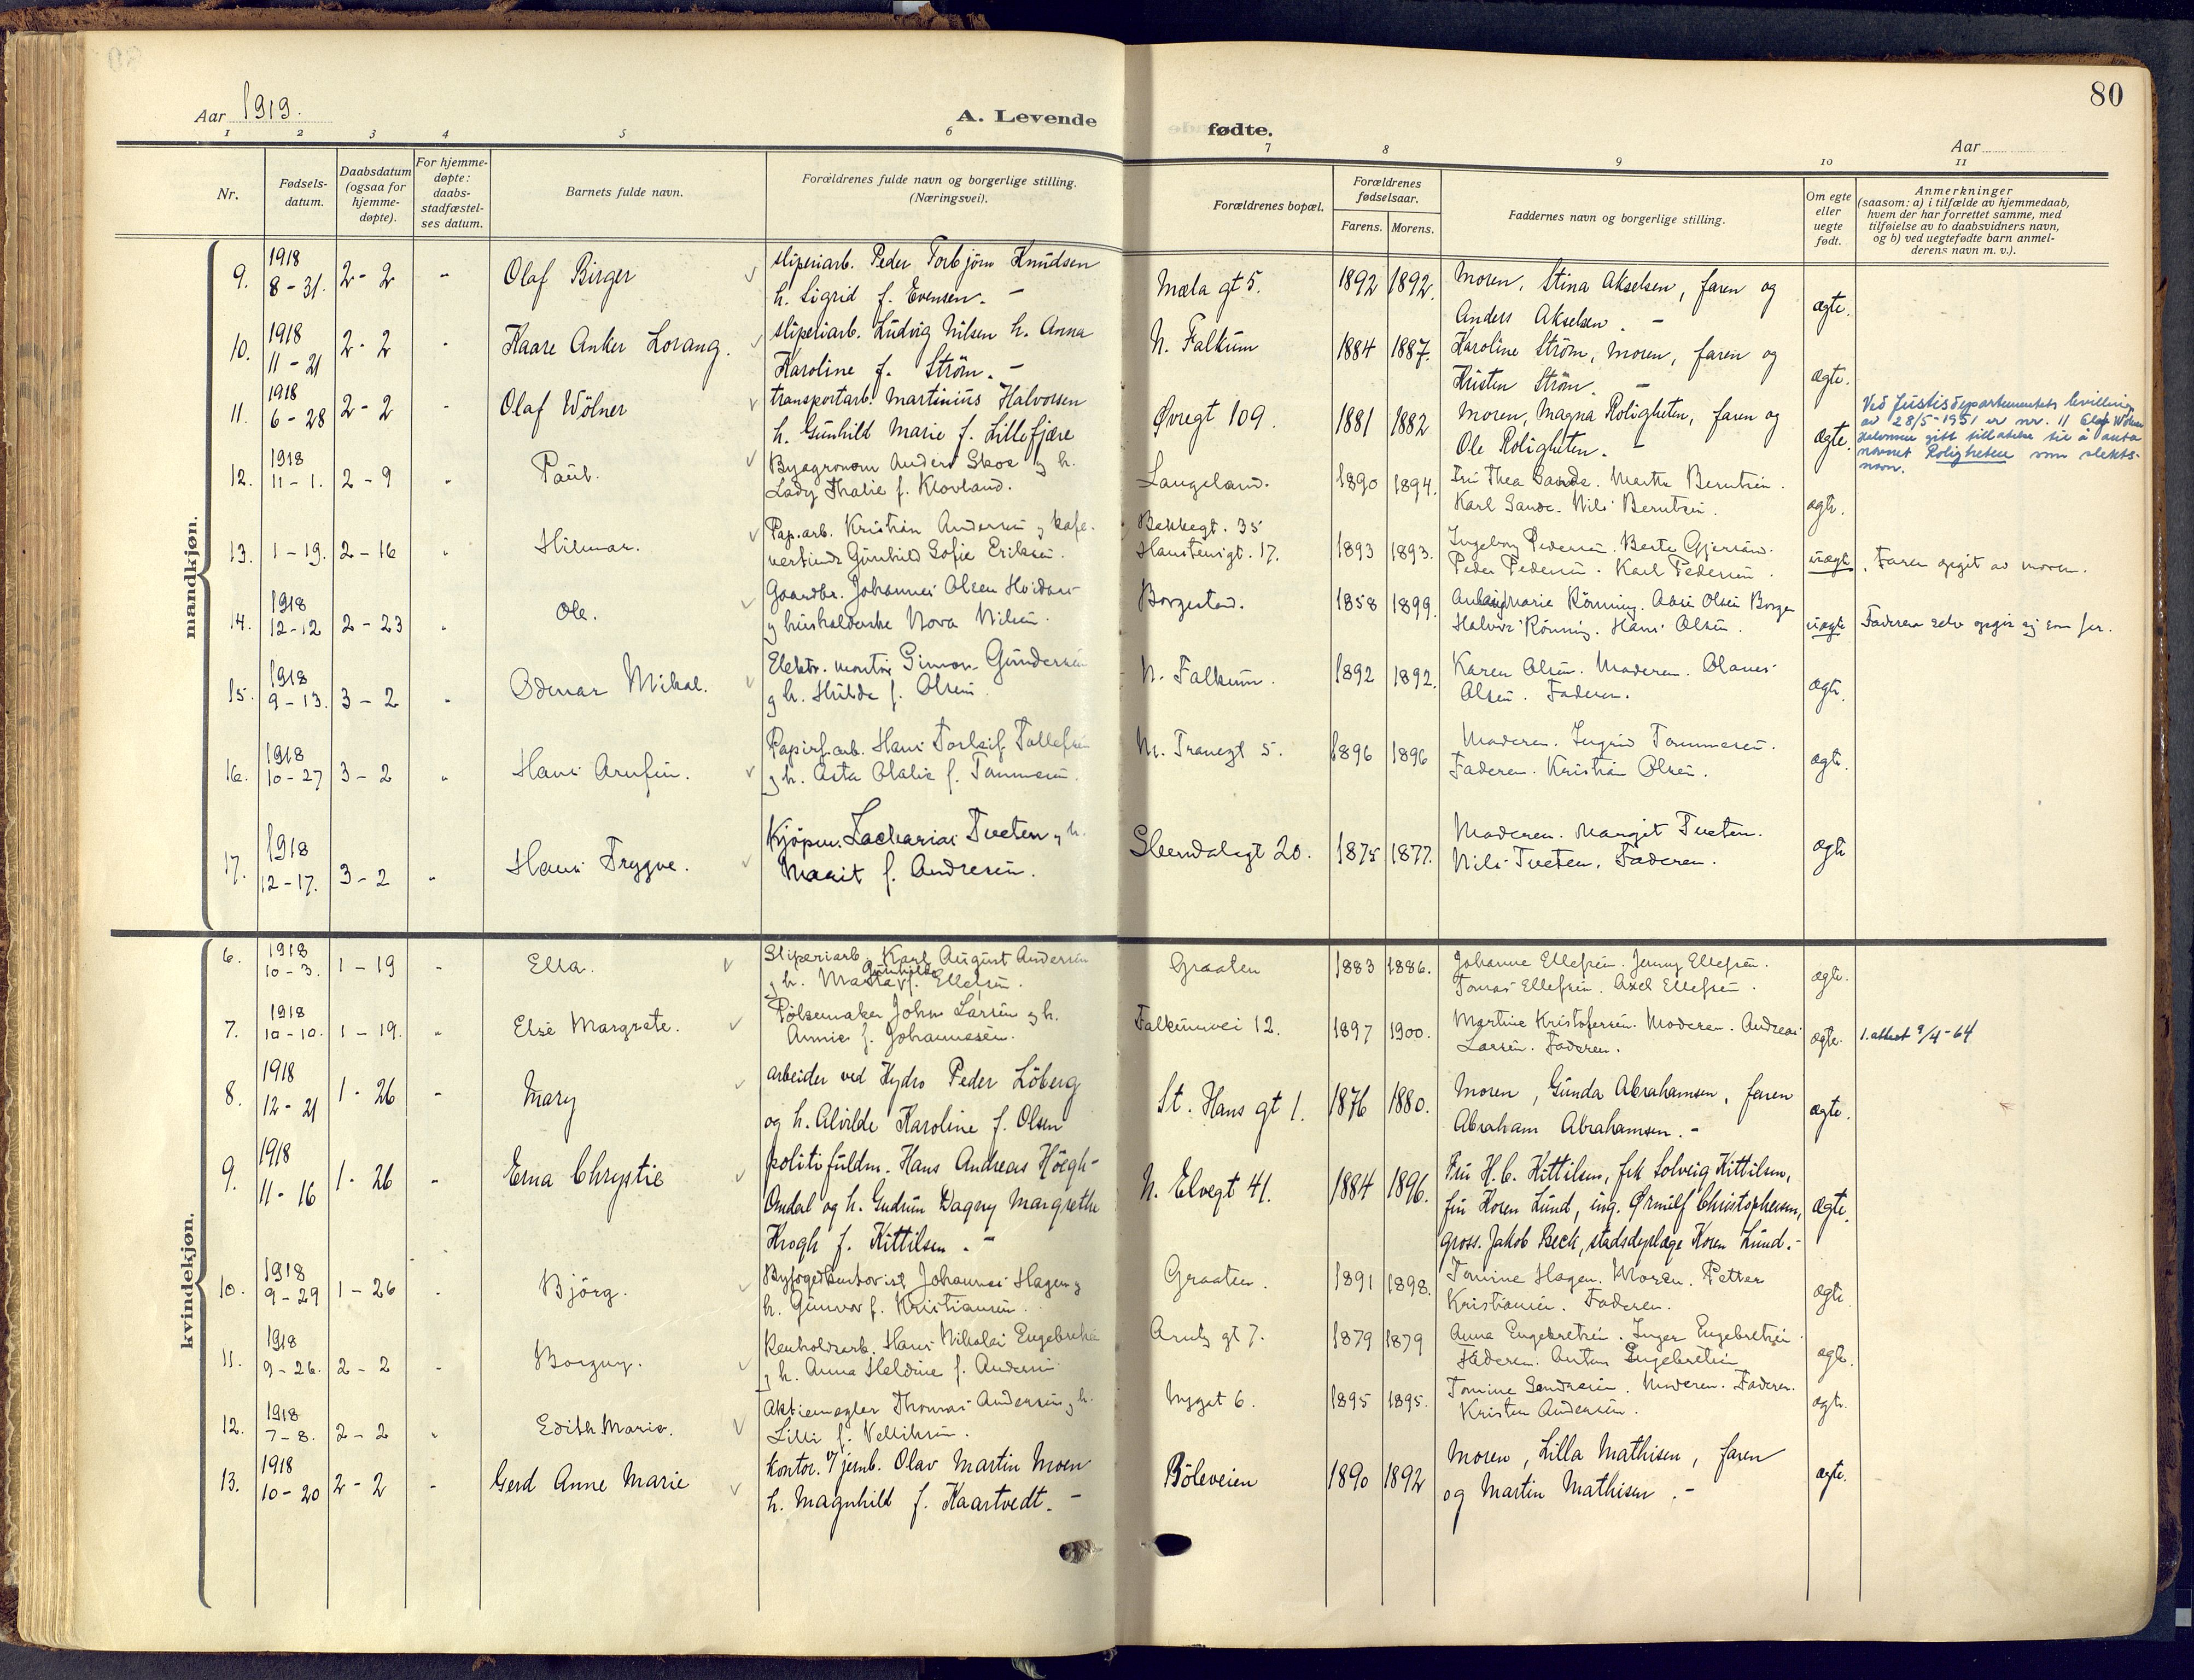 80
Aar 1919.
A. Levende
fødte.
Aar
1 2 3 4 5 6 7 8 9 10 11
Nr.
Fødsels-
datum.
Daabsdatum
(ogsaa for
hjemme-
døpte).
For hjemme-
døpte:
daabs-
stadfæstel-
ses datum.
Barnets fulde navn.
Forældrenes fulde navn og borgerlige stilling.
(Næringsvei).
Forældrenes bopæl.
Forældrenes
fødselsaar.
Farens. Morens.
Faddernes navn og borgerlige stilling.
Om egte
eller
uegte
født.
Anmerkninger
(saasom: a) i tilfælde av hjemmedaab,
hvem der har forrettet samme, med
tilføielse av to daabsvidners navn,
og b) ved uegtefødte barn anmel-
derens navn m. v.).
mandkjøn.
9. 1918 8-31. 2-2 " Olaf Birger sliperiarb. Peder Torbjörn Knudsen
h. Sigrid f. Evensen. - Mæla gt 5. 1892 1892. Moren, Stina Akselsen, faren og
Anders Akselsen. - ægte.
10. 1918 11-21 2-2 " Kaare Anker Lorang. sliperiarb. Ludvig Nilsen h. Anna
Karoline f. Ström. - N. Falkum 1884 1887. Karoline Ström, moren, faren og
Kristen Ström. - ægte.
11. 1918 6-28 2-2 " Olaf Wölner transportarb. Martinius Halvorsen
h. Gunhild Marie f. Lillefjære Øvregt 109. 1881 1882 Moren, Magna Roligheten, faren og
Ole Roligheten. - ægte.
Ved Justisdepartementets bevilling
av 28/5-1951 er nr. 11 Olaf Wölner
Halvorsen gitt tillatelse til å anta
navnet Roligheten som slekts-
navn.
12. 1918 11-1. 2-9 " Paul. Byagronom Anders Skoe og h.
Lady Thalie f. Klovland. Langeland. 1890 1894. Fru Thea Sande. Marthe Berntsen.
Karl Sande. Nils Berntsen. ægte.
13. 1-19. 2-16 " Hilmar. Pap.arb. Kristian Andersen og kafe-
vertinde Gunhild Sofie Eriksen. Bekkegt. 35
Hanstensgt. 17. 1893 1893. Ingeborg Pedersen. Berte Gjersund.
Peder Pedersen. Karl Pedersen. uægte. Faren opgit av moren.
14. 1918 12-12 2-23 " Ole. Gaardbr. Johannes Olsen
og husholderske Nora Nilsen. Borgestad. 1858 1899. Marie Rönning. Olsen Borge
Halvor Rönning. Hans Olsen. uægte Faderen selv opgir sig som far.
15. 1918 9-13. 3-2 " Odmar Mikal. Elektr. montör Simon Gundersen
og h. Hulda f. Olsen. N. Falkum. 1892 1892. Karen Olsen. Moderen. Olaves
Olsen. Faderen. ægte.
16. 1918 10-27 3-2 " Hans Arnfin. Papirf.arb. Hans Torleif Tollefsen
og h. Asta Olalie f. Tommesen. N. Tranegt 5. 1896 1896 Moderen. Ingrid Tommesen.
Faderen. Kristian Olsen. ægte.
17. 1918 12-17. 3-2 " Hans Trygve. Kjöpm. Zacharias Tveten og h.
Marit f. Andresen. Skeradalsgt 20. 1875 1877. Moderen. Margit Tveten.
Nils Tveten. Faderen. ægte
kvindekjøn.
6. 1918 10-3. 1-19 " Ella. Sliperiarb. Karl August Andersen
og h. Marta Gunhilda f. Ellefsen. Graaten 1883 1886. Johanne Ellefsen. Jenny Ellefsen.
Tomas Ellefsen. Axel Ellefsen. ægte.
7. 1918 10-10. 1-19. " Else Margrete. Pölsemaker John Larsen og h.
Annie f. Johannesen. Falkumvei 12. 1897 1900. Martine Kristofersen. Moderen. Andreas
Larsen. Faderen. ægte. 1. attest 9/4-64
8. 1918 12-21 1-26 " Mary arbeider ved Hydro Peder Löberg
og h. Alvilde Karoline f. Olsen St. Hans gt 1. 1876 1880. Moren, Gunda Abrahamsen, faren
Abraham Abrahamsen. - ægte.
9. 1918 11-16 1-26 " Erna Chrystie politifuldm. Hans Andreas Höegh-
Omdal og h. Gudrun Dagny Margrethe
Krogh f. Kittilsen. - N. Elvegt 41. 1884 1896. Fru H. C. Kittilsen, frk Solveig Kittilsen,
fru Koren Lund, ing. Ørnulf Christophersen,
gross. Jakob Beck, stadsdyrlæge Koren Lund. - ægte.
10. 1918 9-29 1-26 " Björg. Byfogedkontorist Johannes Hagen og
h. Gunvor f. Kristiansen. Graaten. 1891 1898. Tomine Hagen. Moren. Petter
Kristiansen. Faderen. ægte.
11. 1918 9-26. 2-2 " Borgny. Renholdsarb. Hans Nikolai Engebretsen
og h. Anna Heldine f. Andersen. Arnts gt 7. 1879 1879 Anna Engebretsen. Inger Engebretsen
Faderen. Anton Engebretsen. ægte.
12. 1918 7-8. 2-2 " Edith Marie. Aktiemegler Thomas Andersen og h.
Lilli f. Nygt 6. 1895 1895. Tomine Moderen. Faderen.
Kristen Andersen. ægte.
13. 1918 10-20 2-2 " Gerd Anne Marie kontor. v/ jernb. Olav Martin Moen
h. Magnhild f. Kaartvedt. - Böleveien 1890 1892 Moren, Lilla Mathisen, faren
og Martin Mathisen. - ægte.